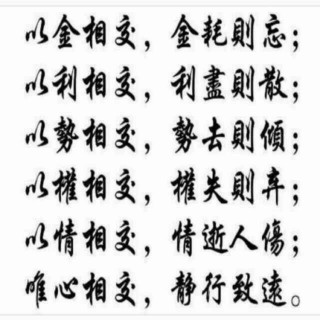 以金相交，金耗則忘；
以利相交，利盡則散；
以勢相交，勢去則傾；
以權相交，權失則弃；
以情相交，情逝人傷；
唯心相交，静行致遠。